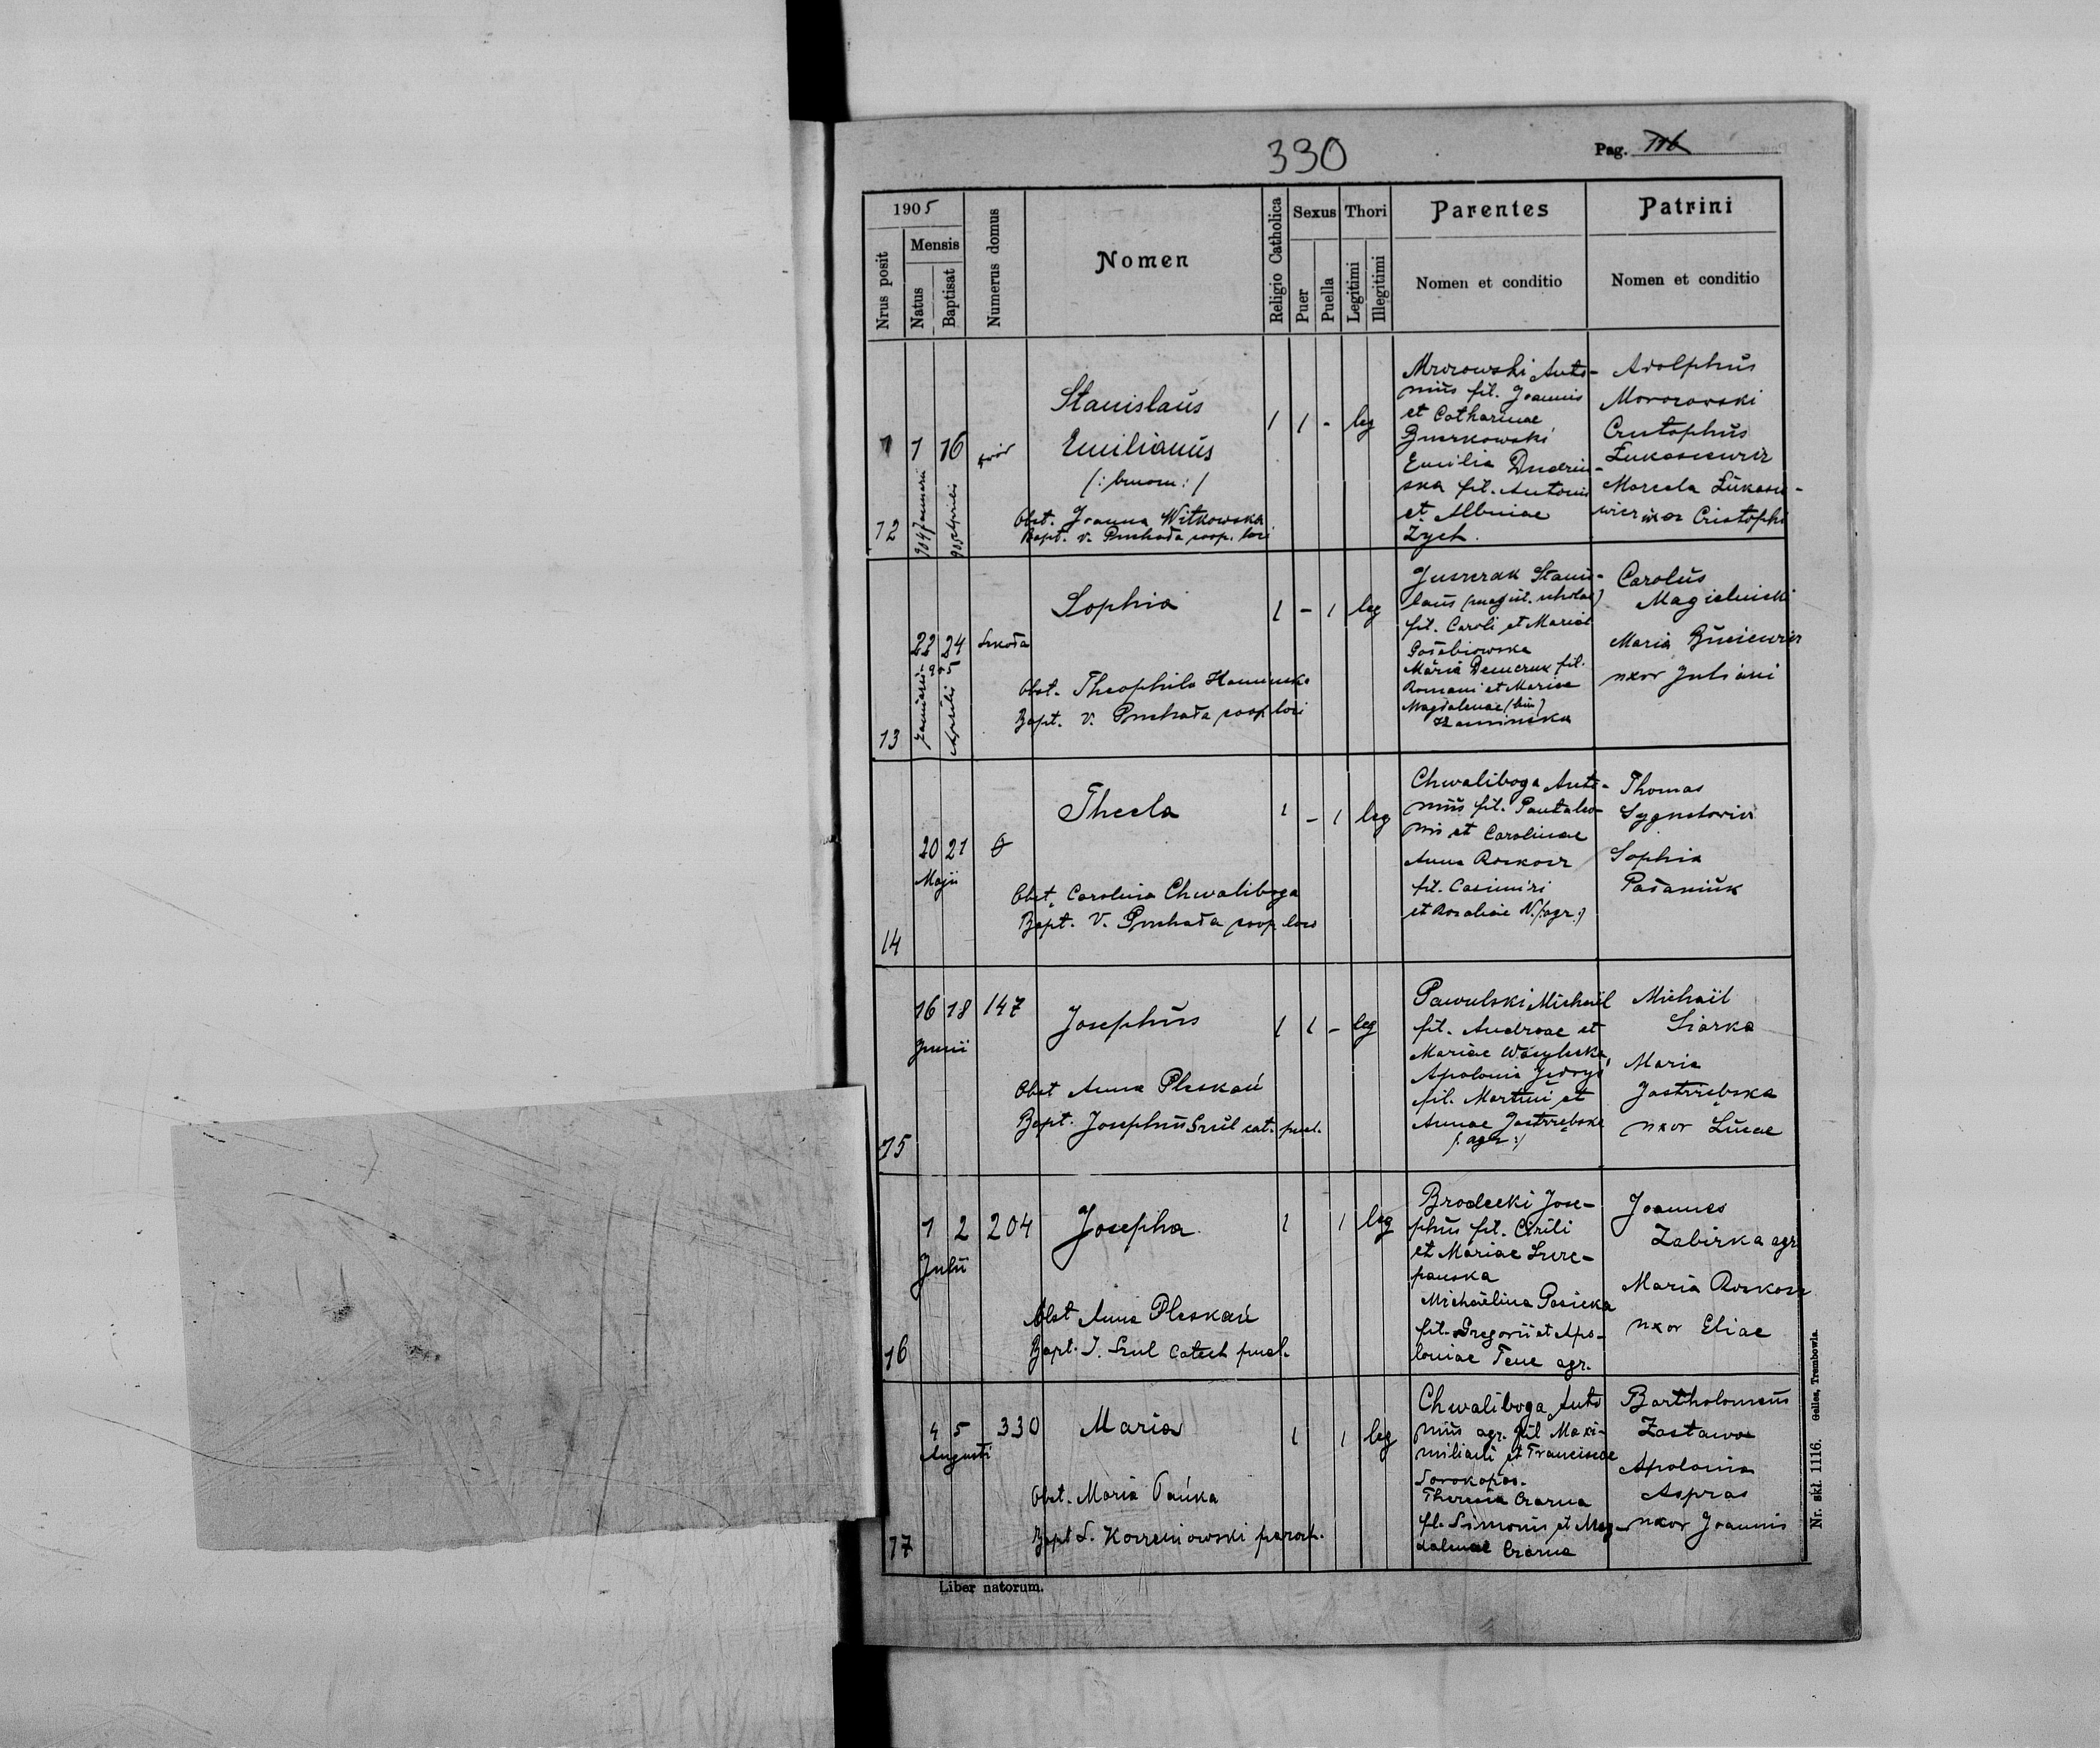 330
Pag.
1905
Nrus posit
Mensis
Natus
Baptisat
Numerus domus
Nomen
Religio Catholica
Sexus
Puer
Puella
Thori
Legitimi
Illegitimi
Parentes
Nomen et conditio
Patrini
Nomen et conditio
12
1 16
904 Januarii
905 Aprilis
Stanislaus
Emilianus
(: binom :)
Obst. Joanna Witkowska
Bapt. V. Puchała coop. loci
1 1 - leg
Mrozowski Anto-
nius fil. Joannis
et Catharinae
Emilia
ska fil. Antonii
et Albinae
Zych.
Adolphus
Morozowski
Cristophus
Łukasiewicz
Marcela Łukasie-
wicz uxor Cristophi
13
22 24
Januarii
Aprili
Szkoła
Sophia
Obst. Theophila Kaminska
Bapt. V. Puchała coop loci
1 - 1 leg
Juszczak Stanis-
laus (magist. scholae)
fil. Caroli et Mariae
Maria Demczuk fil.
Romani et Mariae
Magdalenae (bin)
Kaminska
Carolus
Magielnicki
Maria
uxor Juliani
14
20 21
Maji
Thecla
Obst. Carolina Chwaliboga
Bapt. V. Puchała coop. loci
1 - 1 leg
Chwaliboga Anto-
nius fil. Pantaleo-
nis et Carolinae
Anna Roskosz
fil. Casimiri
et Rosaliae N. (: agr :)
Thomas
Sygnatowicz
Sophia
Pałaniuk
15
16 18 147
Junii
Josephus
Obst Anna Pleskań
Bapt. Josephus Szul cat. puel.
1 1 - leg
Pawulski Michaël
fil. Andreae et
Mariae Wasylecka,
Apolonia
fil. Martini et
Annae Jastrzębska
(: agr :)
Michaël
Siarka
Maria
Jastrzębska
uxor Lucae
16
1 2 204
Julii
Josepha
Obst Anna Pleskań
Bapt. J. Szul catech puel.
1 1 leg
Brodecki Jose-
phus fil. Cirili
et Mariae Szcze-
pańska
Michaëlina Pasieka
fil. Gregorii et Apo-
loniae agr.
Joannes
Zabirka agr
Maria Roskosz
uxor Eliae
17
4 5 330
Augusti
Maria
Obst. Maria Pańka
Bapt S. Korzeniowski paroch.
1 1 leg
Chwaliboga Anto
nius agr. fil Maxi-
miliani et Franciscae
Sorokopas.
Theresia Czarna
fil. Simonis et Mag-
dalenae Czarna
Bartholomeus
Zastawa
Apolonia
Aspras
uxor Joannis
Liber natorum.
Nr. skł. 1116. Gelles, Trembowla.